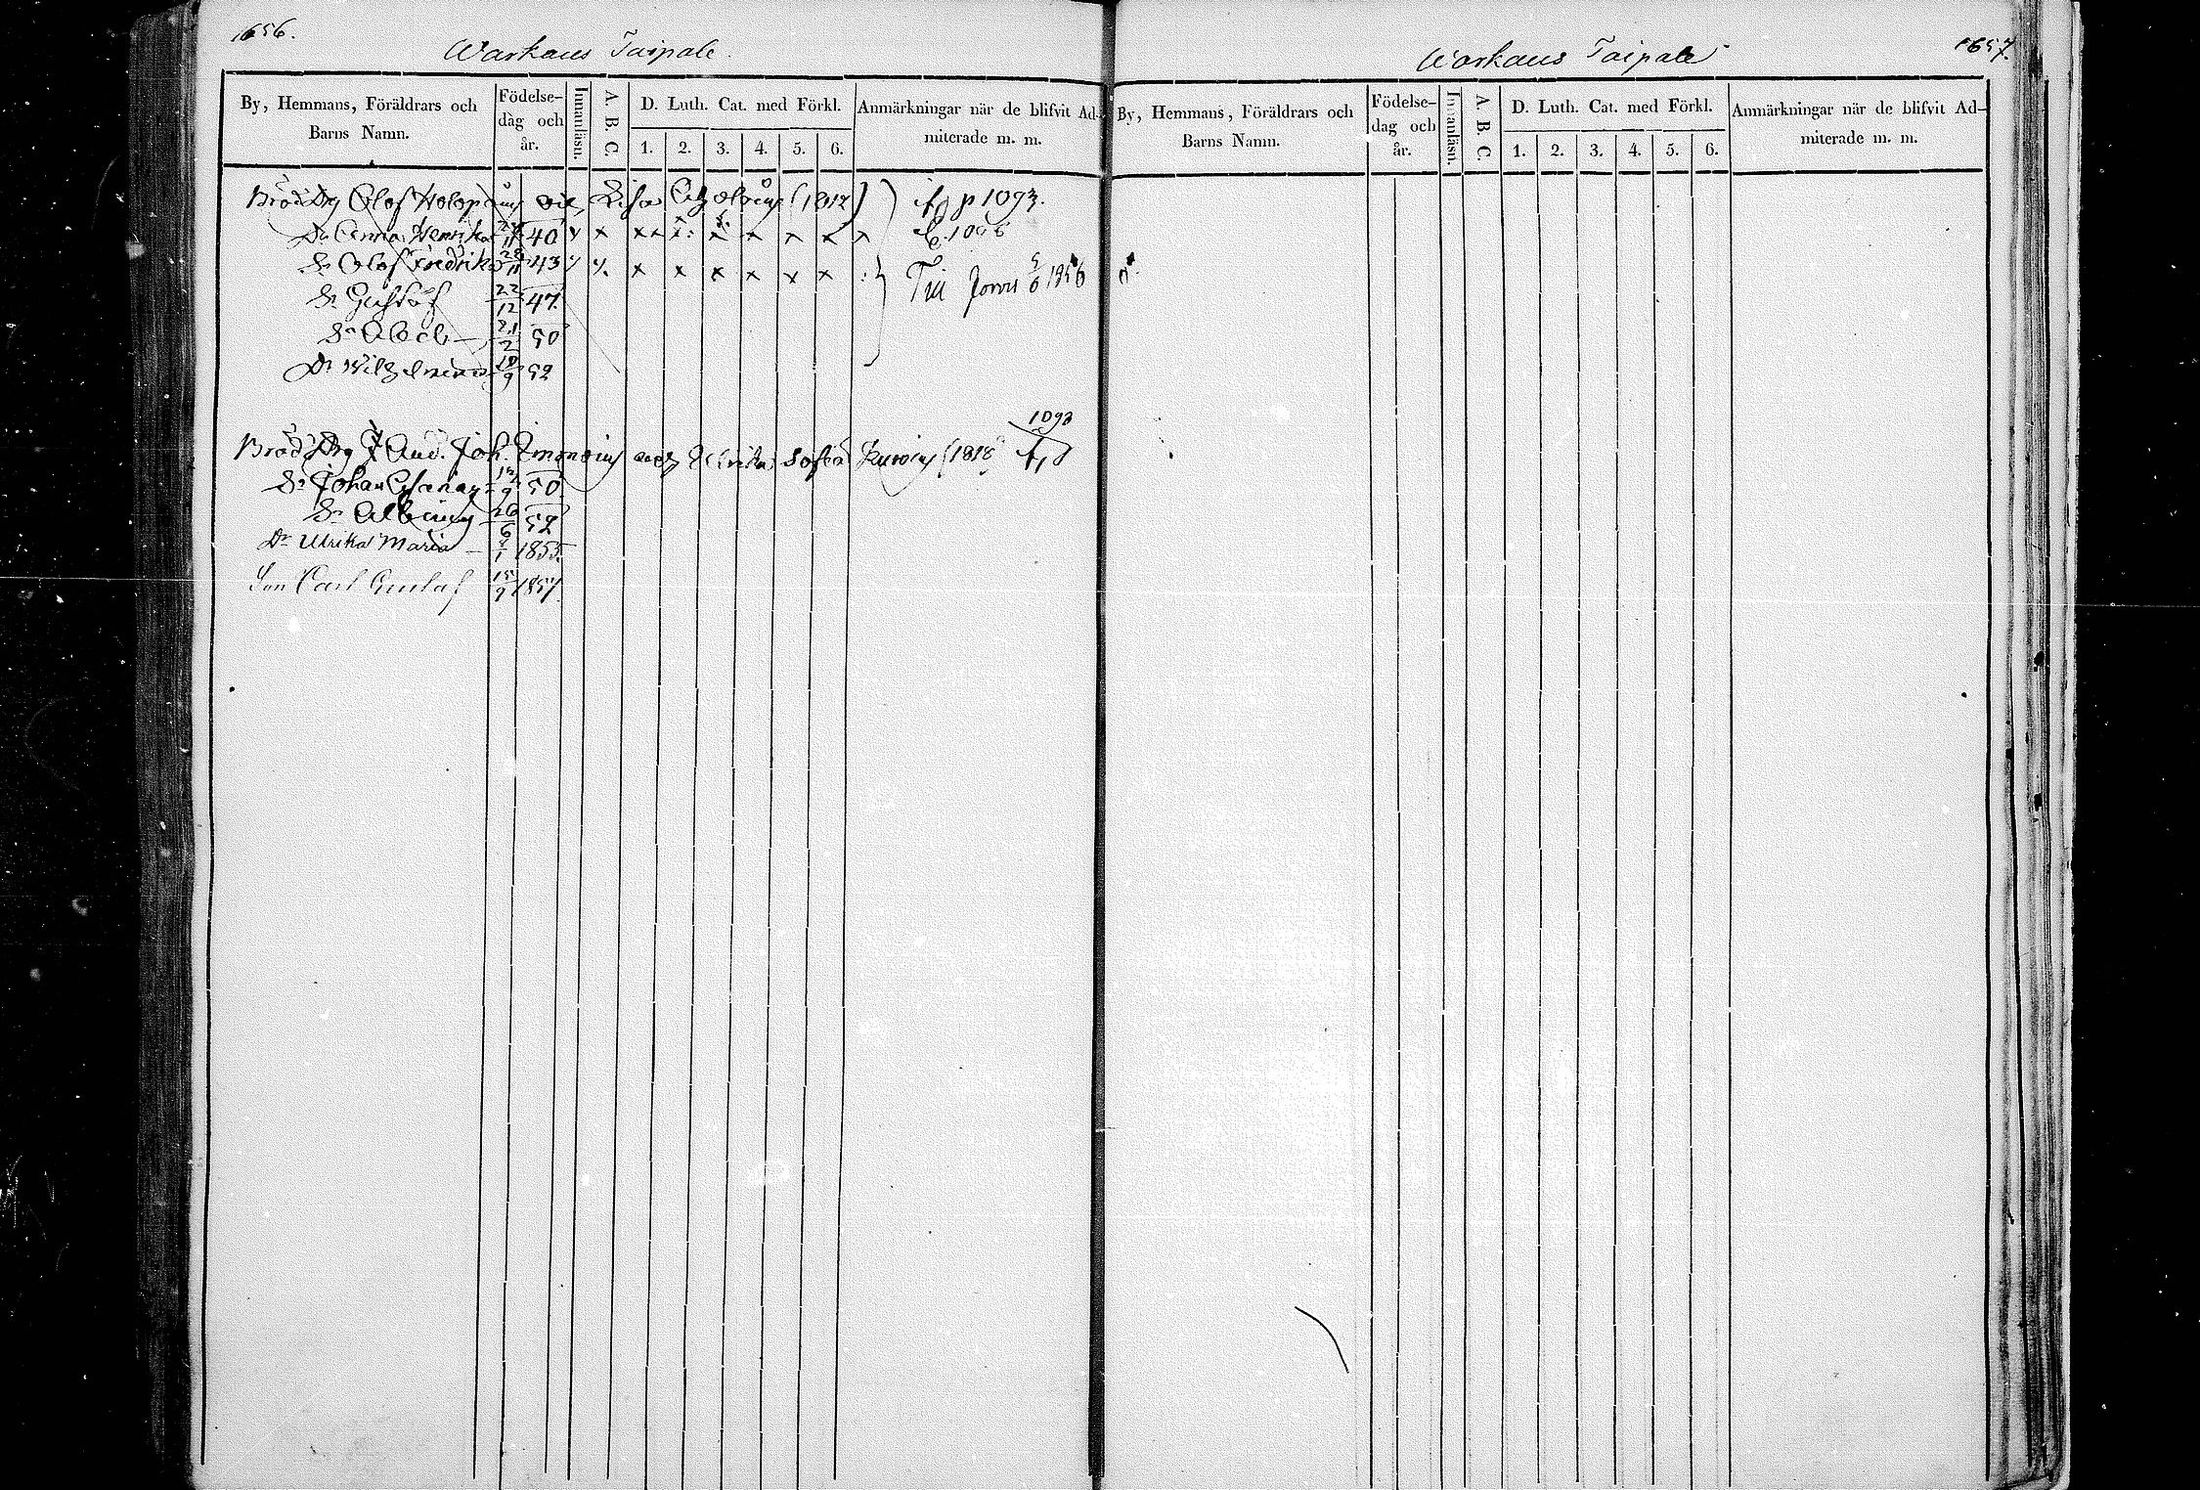 1656.
Warkaus Taipale.
By, Hemmans, Föräldrars och Barns Namn.
Födelse-dag och år.
Innanläsn.
A. B. C.
D. Luth. Cat. med Förkl.
1. 2. 3. 4. 5. 6.
Anmärkningar när de blifvit Ad-miterade m. m.
Olof Lisa (1812) p 1093.
Dr Anna Henrika 11 40 x x x x x x x
Sr Olof Fredrik 28/11 43 x x x x x x Till 5/6 1856
Sr Gustaf 22/12 47.
Sr Abel 21/2 50
Dr Wilhelmina 10/9 52
1093
And. Joh. Ulrika Sofia (1818
Sr Johan 9 50.
Sr Albin 26/6 52
Dr Ulrika Maria 1 1855.
Son Carl Gustaf 15/9 1857.
1657.
Warkaus Taipale
By, Hemmans, Föräldrars och Barns Namn.
Födelse-dag och år.
Innanläsn.
A. B. C.
D. Luth. Cat. med Förkl.
1. 2. 3. 4. 5. 6.
Anmärkningar när de blifvit Ad-miterade m. m.